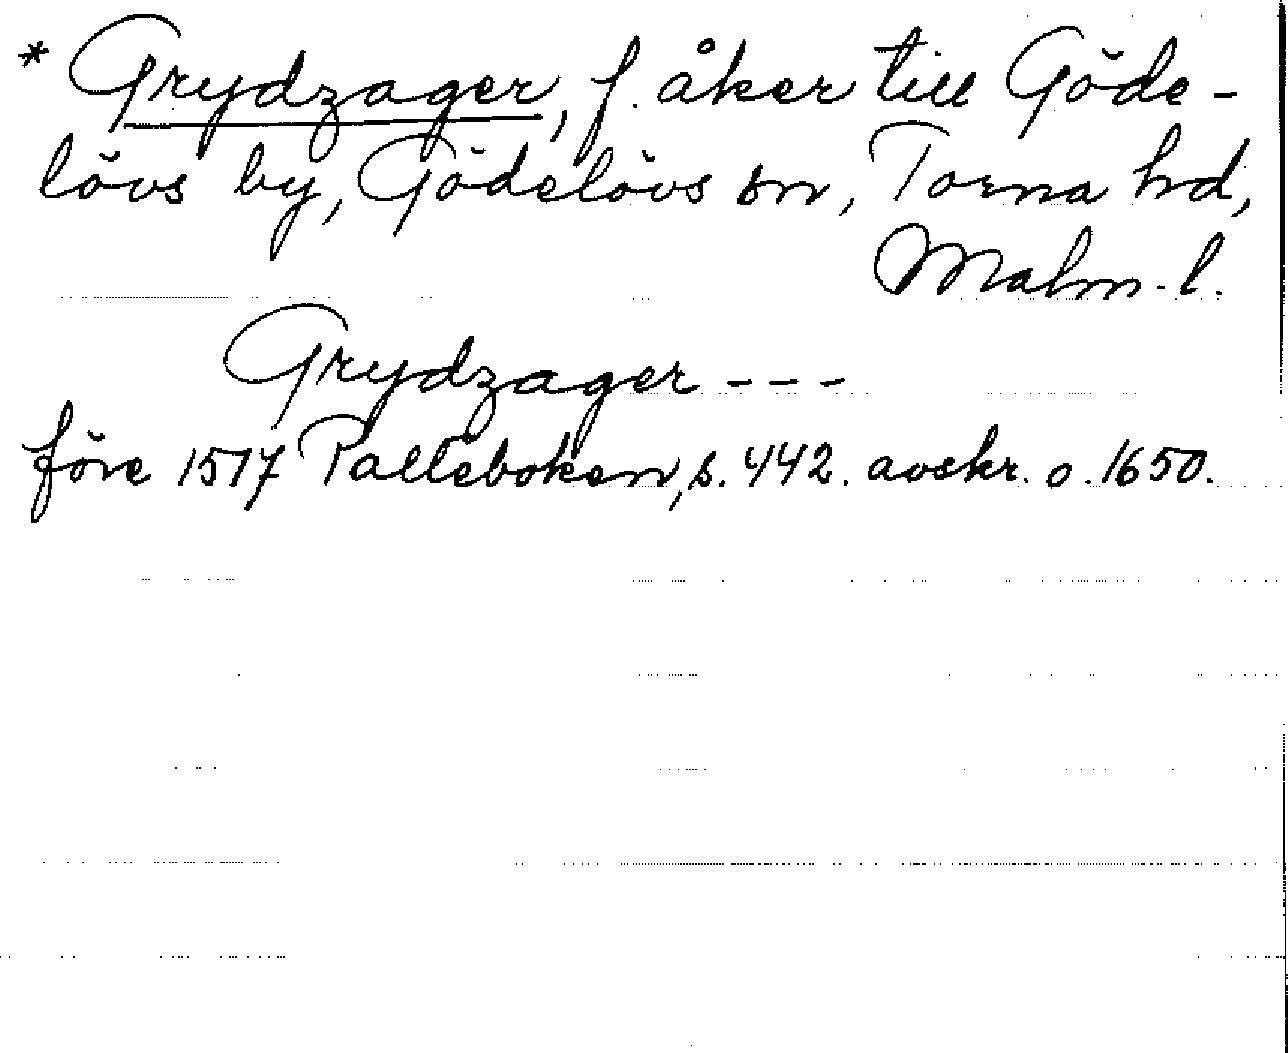 * Grydzager, f. åker till Göde-
lövs by, Gödelövs sn, Torna hd,
Malm. l.
Grydzager - - -
före 1517 Palteboken, s. 442. avskr. o. 1650.